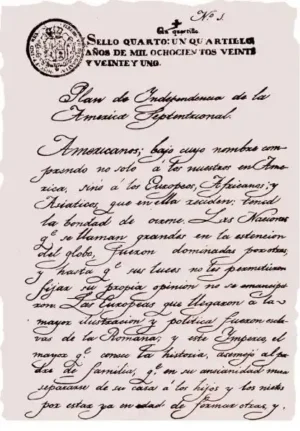 Nº 1.
Un quartillo
SELLO QUARTO: UN QUARTILLO
AÑOS DE MIL OCHOCIENTOS VEINTE
Y VEINTE Y UNO.
Plan de Independencia de la
America Septentrional.
Americanos; bajo cuyo nombre com-
prendo no solo á los nuestros en Ame-
rica, sinó á los Europeos, Africanos, y
Asiaticos que en ella residen: tened
la bondad de oirme. Las Naciones
q.e se llaman grandes en la estencion
del globo, fueron dominadas por otras,
y hasta q.e sus luces no les permitieron
fijar su propia opinión no se emancipa-
ron. Las Europeas que llegaron á la
mayor ilustracion y política fueron escla-
vas de la Romana; y este Imperio, el
mayor q.e conoce la historia, asemejó al pa-
dre de familia, q.e en su ancianidad mira
separarse de su casa á los hijos y los nietos
por estar ya en edad de formar otras, y